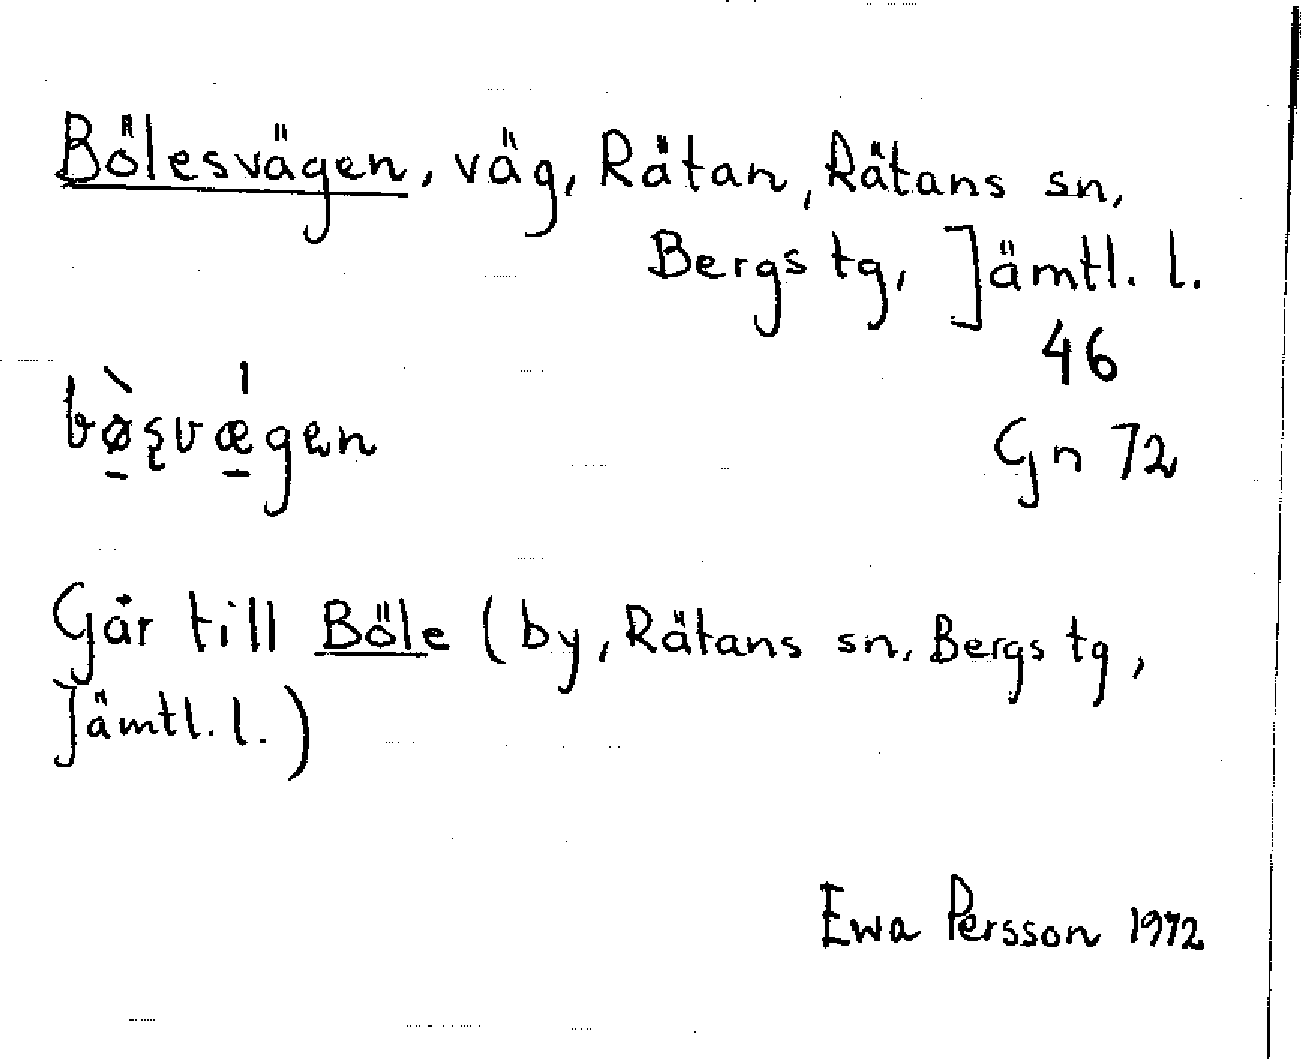 Bölesvägen, väg, Rätan, Rätans sn,
Bergs tg, Jämtl. l.
46
Gn 72
Går till Böle (by, Rätans sn, Bergs tg,
Jämtl. l.)
Ewa Persson 1972